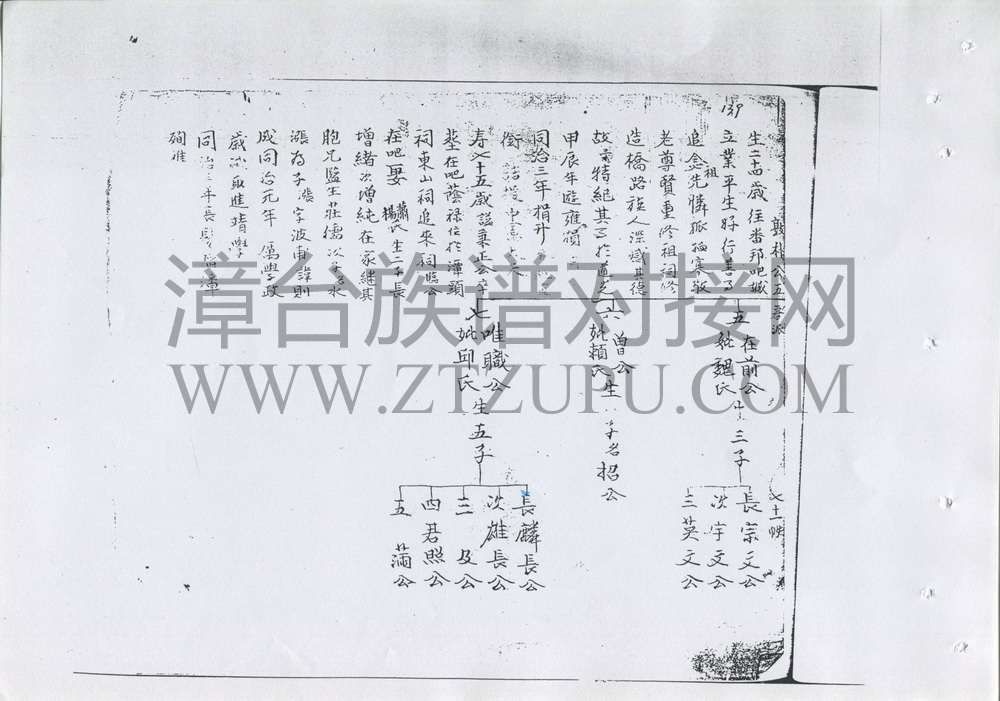 139
敦朴公五房派
生二十四歲往番邦吧城
立業平生好行善事
追念先祖憐孤恤寡敬
老尊賢重修祖祠修
造橋路族人深感其德
故特紀其事於
甲辰年遊
同治三年捐升
銜 誥授中憲大夫
寿七十五歲謚秉正公卒
塟在吧蔭禄位於漳頭
祠東山祠追來祠臨公
在吧娶蕭氏楊氏生二子長
增緒次增純在家継其
胞兄監生莊儒次子名水
漲為子漲字波甫諱則
成同治元年 學政
歲 取進靖學
同治三年長
殉难
五 在前公
妣魏氏 生三子
六 曾公
妣賴氏生 子名招公
七 唯職公
妣邱氏生五子
七十一帙
長宗文公
次宇文公
三英文公
長麟長公
次雄長公
三及公
四君照公
五蒲公
漳台族谱对接网
WWW.ZTZUPU.COM